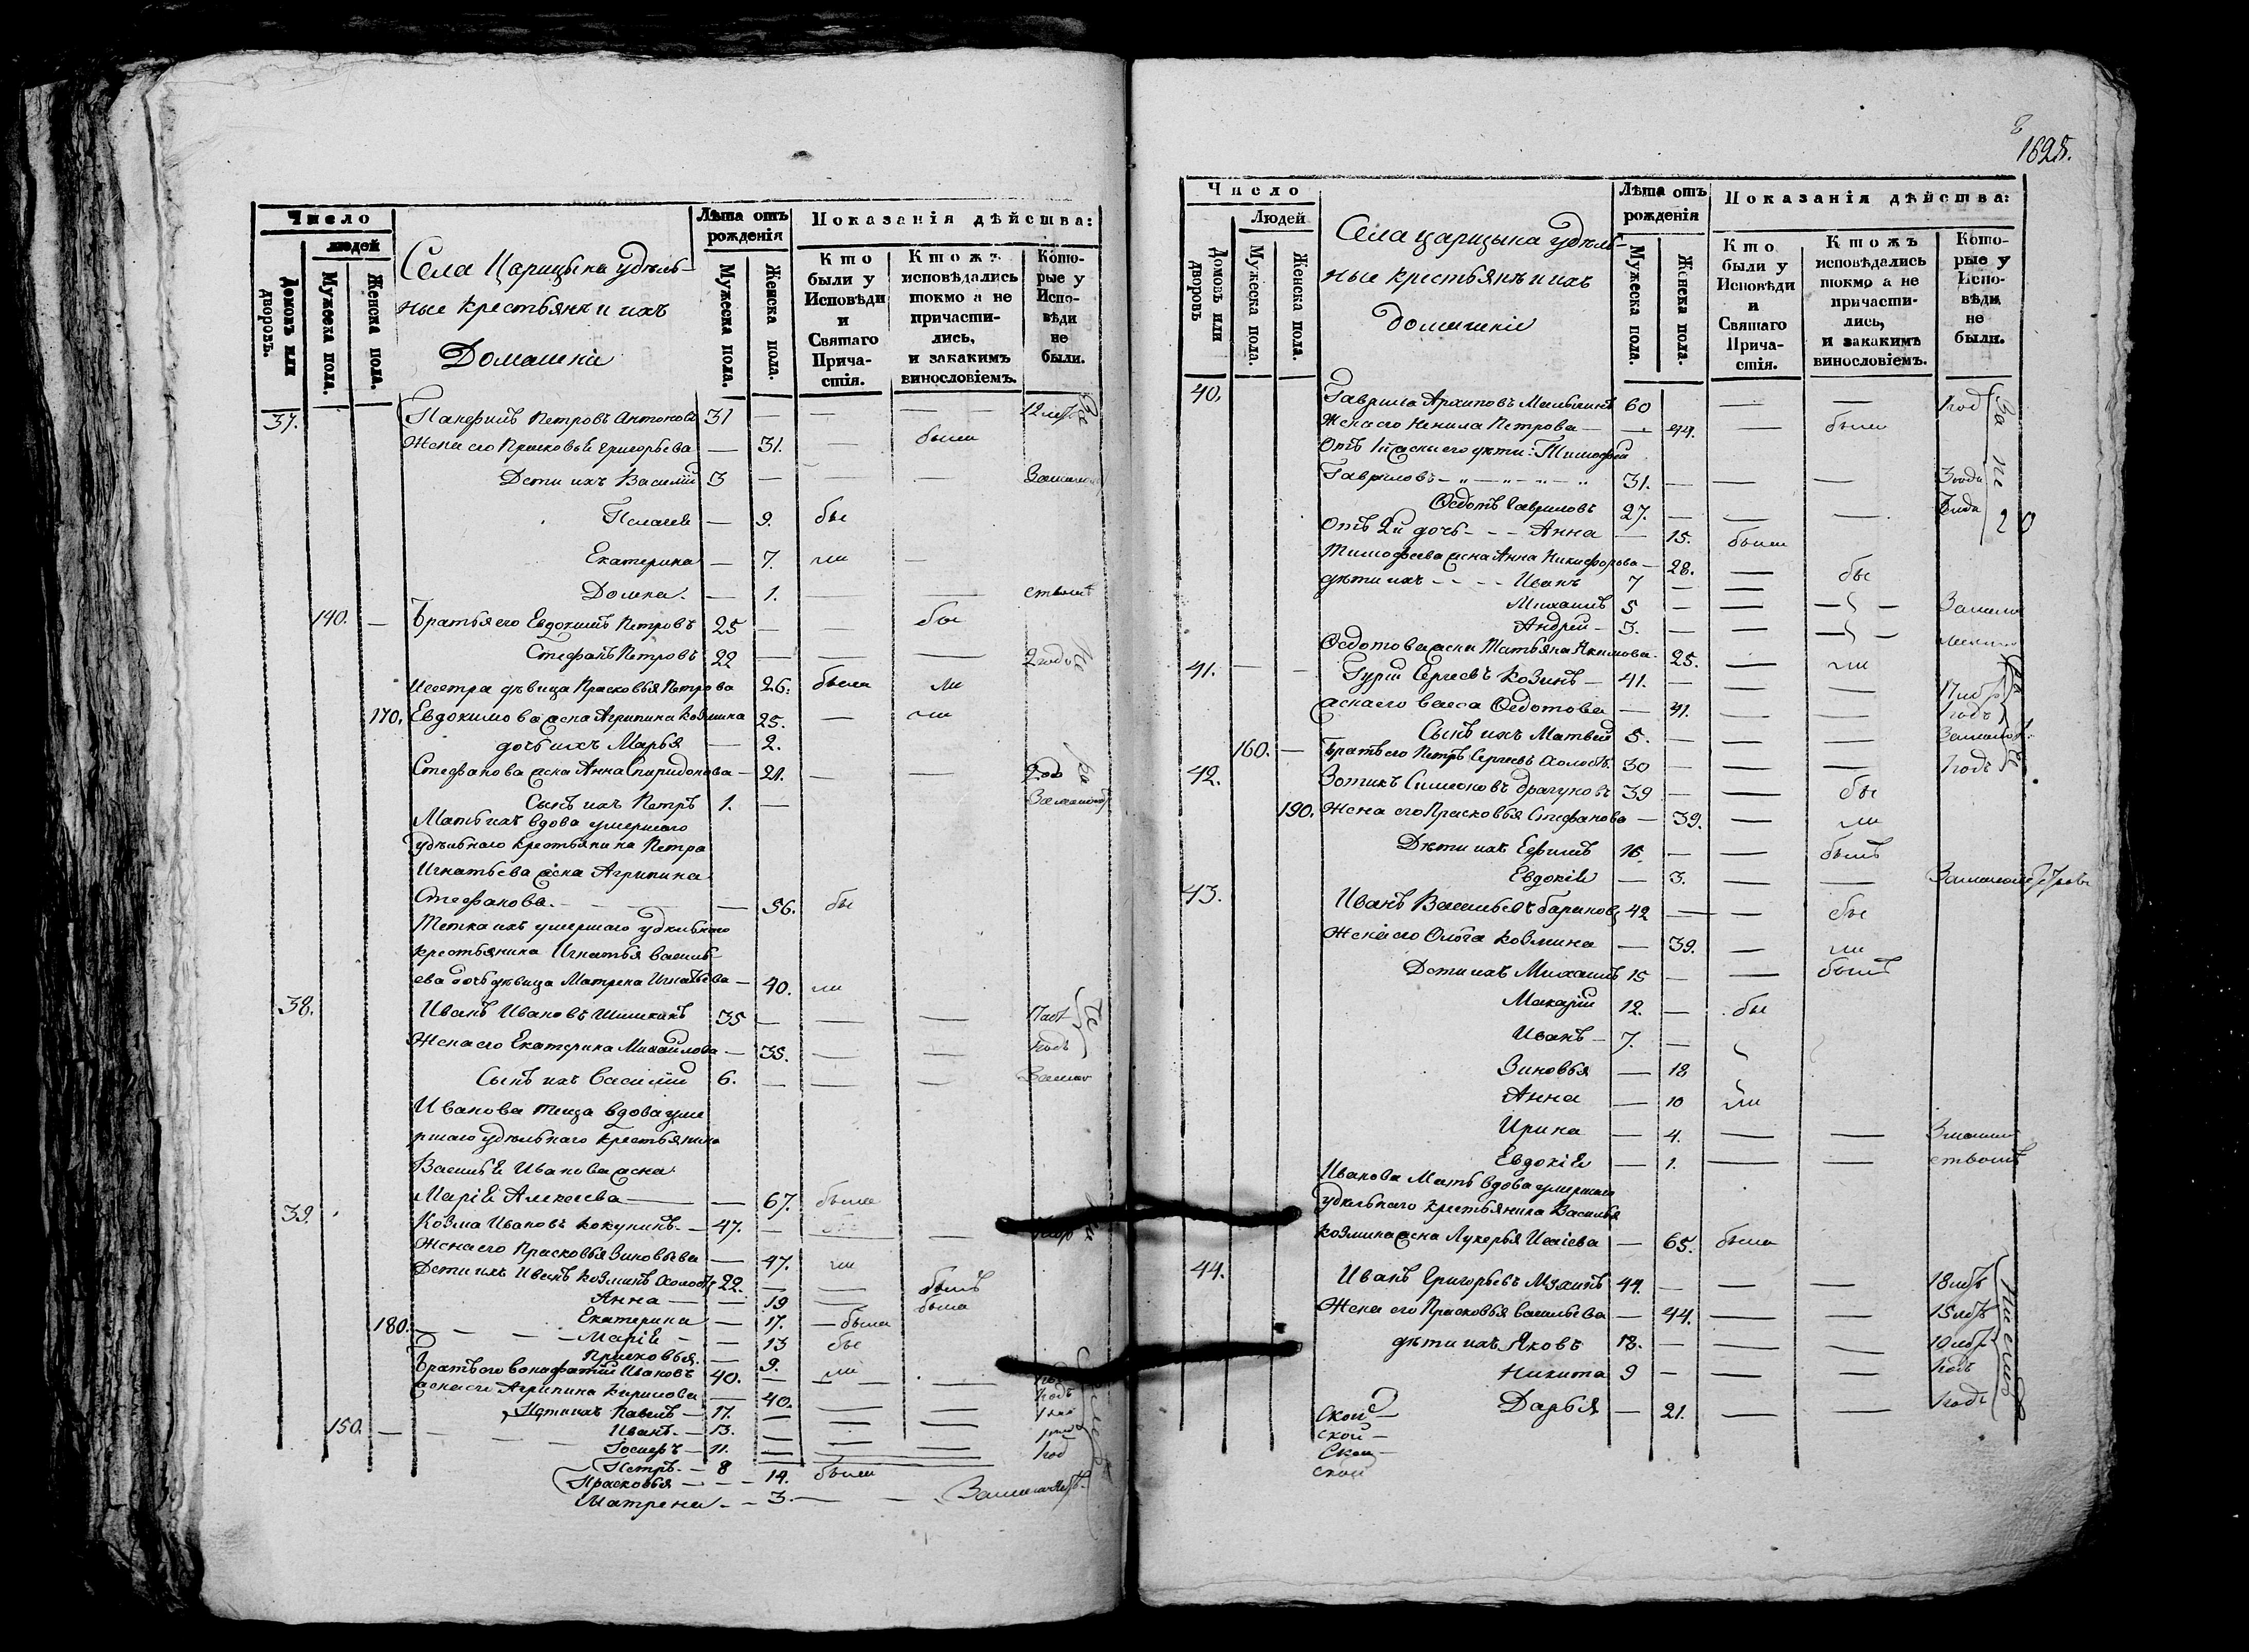 Число
людей
Домовъ или дворовъ.
Мужеска пола.
Женска пола.
Села Царицына удѣль-
ные крестьянѣ и ихъ
Домашни
Лѣта отъ рожденія
Мужеска пола.
Женска пола.
Показанія дѣйства:
Кто были у Исповѣди и Святаго Причастія.
Ктожъ исповѣдались токмо а не причастились, и закакимъ винословіемъ.
Которые у Исповѣди не были.
37. Панфилъ Петровъ Антоновъ 31 — — — 12 лѣтъ
Жена его Прасковья Григорьева — 31. — была
Дети ихъ Василій 3 — — —
Пелагея — 9. бы
Екатерина — 7. ли —
Домна. — 1. — — ствомъ
140. — Братья его Евдокимъ Петровъ 25 — — бы
Стефанъ Петровъ 22 — — — 2 года
Исестра дѣвица Прасковья Петрова 26. были ли
170. Евдокимова жена Агрипина Козмина 25. — ли
дочь ихъ Марья — 2.
Стефанова жена Анна Спиридонова — 21. — — 2 года
Сынъ ихъ Петръ 1. —
Мать ихъ вдова умершаго
удѣльнаго крестьянина Петра
Игнатьева жена Агрипина
Стефанова. — 56. бы
Тетка ихъ умершаго удѣльнаго
крестьянина Игнатья Василь-
ева дочь дѣвица Матрена Игнатьева — 40. ли
38. Иванъ Ивановъ Шишкинъ 35 — — —
Жена его Екатерина Михайлова — 35. — — годъ
Сынъ ихъ Василій 6. — — —
Иванова теща вдова уме
ршаго удѣльнаго крестьянина
Василья Иванова жена
Марія Алексеева — — 67. была
39. Козма Ивановъ Кокунинъ — 47. —
Жена его Прасковья Зиновьева — 47. ли
Дети ихъ Иванъ Козминъ Холостъ 22. — — былъ
Анна — — 19 — была
Екатерина — 17. — была
180. — Марія — — 13 бы
Прасковья. — 9. ли
Братъ его Вонифатій Ивановъ 40. — —
жена его Агрипина Кирилова — 40. — — годъ
Дети ихъ Павелъ — 17. — —
150. — Иванъ — 13. — —
Госифъ — 11. — — год
Петръ — 8
Прасковья — 14. были
Матрена — 3. — —
1828.
Число
Людей
Домовъ или дворовъ
Мужеска пола.
Женска пола.
Села царицына удѣль-
ные крестьянѣ и ихъ
домашніи
Лѣта отъ рожденія
Мужеска пола.
Женска пола.
Показанія дѣйства:
Кто были у Исповѣди и Святаго Причастія.
Ктожъ исповѣдались токмо а не причастились, и закакимъ винословіемъ.
Которые у Исповѣди не были.
40. Гаврила Архиповъ 60 — — 1 год
Жена его Ненила Петрова — 44. — были
Отъ 1й жены его дѣти: Тимофей
Гавриловъ 31. — — — 3 года
Ѳедотъ Гавриловъ 27. — — — года
Отъ 2й дочь - - - Анна — 15. были
Тимофеева жена Анна Никифорова — 28. — бы
дѣти ихъ - - - - Иванъ 7 — —
Михаилъ 5 — — —
Андрей — 3. — — —
Ѳедотова жена Татьяна Якимова. 25. — ли
41. — — Гурій Сергеевъ Козинъ — 41. — — —
жена его Васса Ѳедотова — 41. — — 1 годъ
Сынъ ихъ Матвей 5. — — —
160. — Братъ его Петръ Сергеевъ Холостъ. 30 — — — 1 годъ
42. Зотикъ Симеоновъ Драгуновъ 39 — — бы
190. Жена его Прасковья Стефанова — 39. — ли
Дѣти ихъ Ефимъ 16. — — былъ
Евдокія — 3. — —
43. Иванъ Васильевъ Бариновъ 42 — — бы
Жена его Олга Козмина — 39. — ли
Дети ихъ Михаилъ 15 — — былъ
Макарій 12. — бы
Иванъ — 7. —
Зиновья — 18
Анна — 10 ли
Ирина — 4. — —
Евдокія — 1. — — ствомъ
Иванова Мать вдова умершаго
удѣльнаго крестьянина Василья
Козмина жена Лукерья Исаіева — 65. была
44. Иванъ Григорьевъ 44. — — — 18 лѣтъ
Жена его Прасковья Васильева — 44. — — 15 лѣтъ
дѣти ихъ Яковъ 18. — — — 10 лѣтъ
Никита 9 — — — годъ
Дарья — 21. — — 1 годъ
Ской —
ской —
Ской —
ской